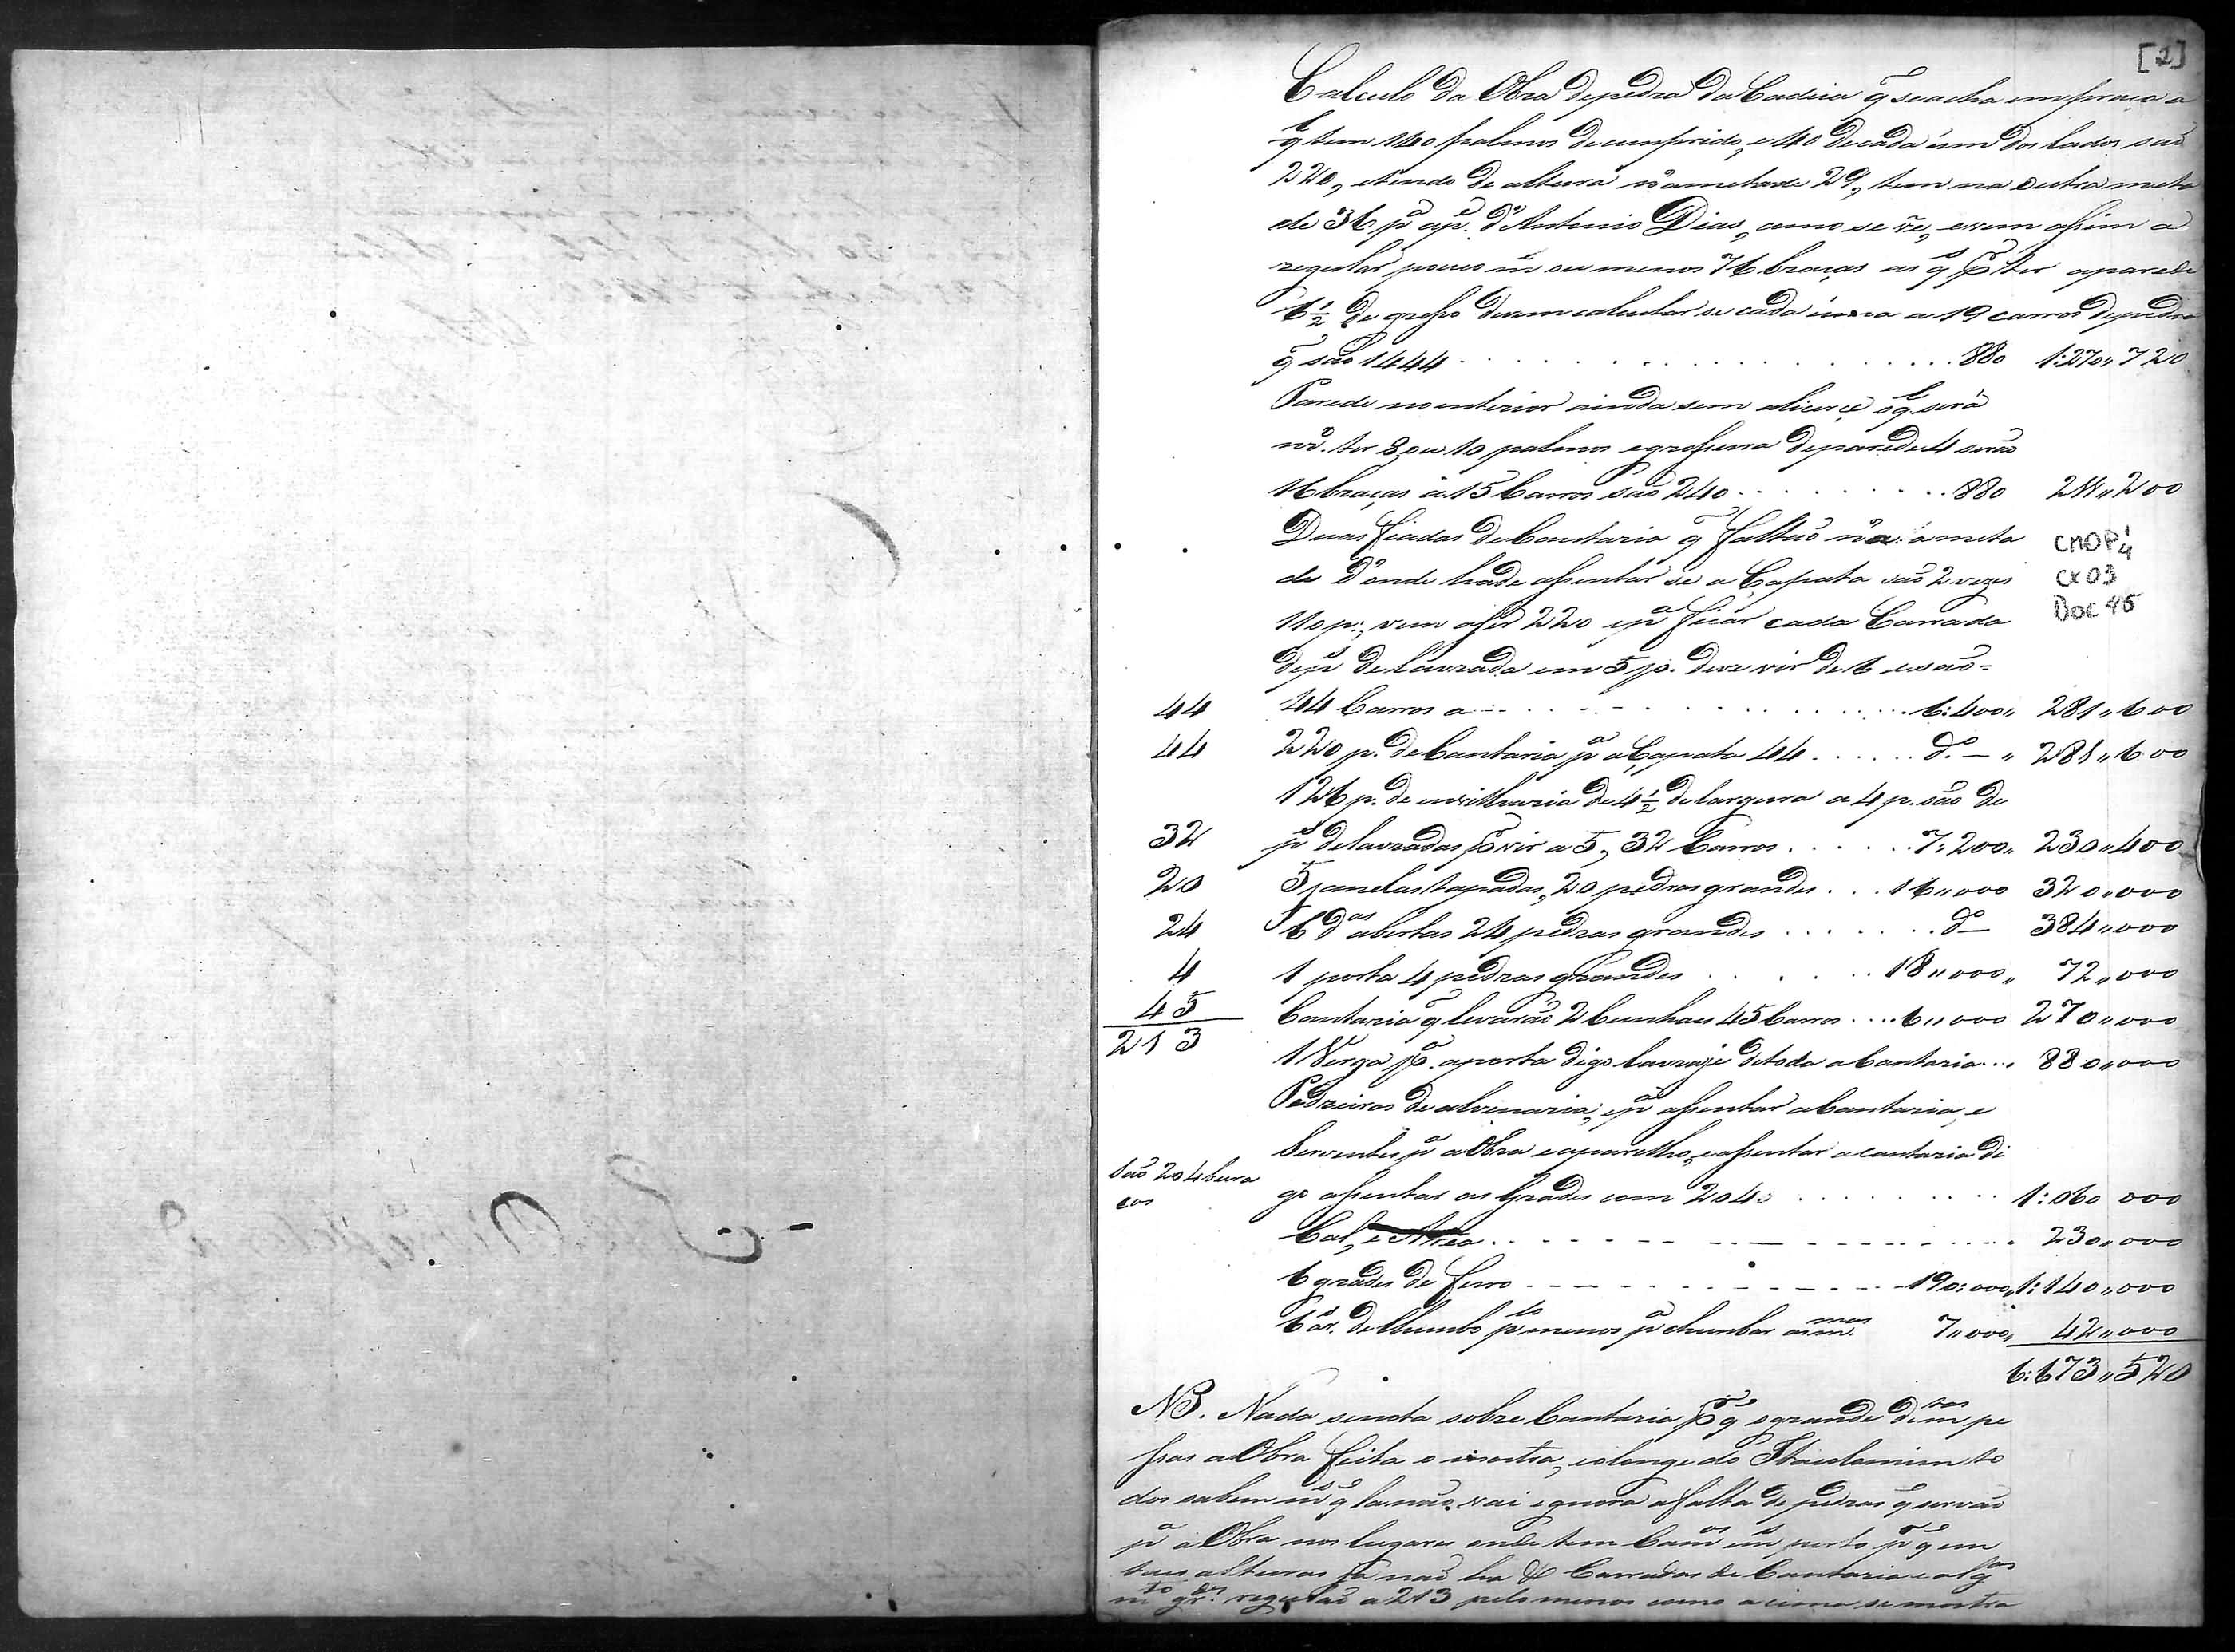 [2]
Calculo da Obra de pedra da Cadeia q̃ se acha em praça a
q.l tem 140 palmos de cumprido, e 40 de cada um dos lados saõ
220, e tendo de altura n'ametade 29, tem na outra meta
de 36 p.a a p.e d'Antonio Dias, como se vê, e vem assim a
regular pouco m.s ou menos 76 braças as q.s p.r ter a parede
6 1/2 de grosso devem calcular se cada úma a 19 carros de pedra
q̃ saõ 1444 . . . . . . . . . . 880 1:270,,720
Parede no interior ainda sem alicerce o q.l será
ter 8, ou 10 palmos e grossura de parede 4 serão
16 braças a 15 Carros saõ 240 . . . . . . . . 880 211,,200
Duas fiadas de Cantaria q̃ faltaõ n'a ameta
de d'onde hade assentar se a Çapata saõ 2 vezes
110 p:, vem a ser 220 e p.a ficar cada Carrada
dep.s de lavrada em 5 p. deve vir de 6 e saõ=
CMOP 1/4
CX 03
DOC 45
44 44 Carros a . . . . . . . . . . 6:400,, 281,,600
44 220 p. de Cantaria p.a a Çapata 44 . . . . . . d.o — ,, 281,,600
126 p. de enxilharia de 4 1/2 de largura a 4 p. saõ de
32 p.s de lavradas p.r vir a 5, 32 Carros . . . . . . 7:200,, 230,,400
20 5 janelas tapadas, 20 pedras grandes . . . 16,,000 320,,000
24 6 d.as abertas 24 pedras grandes . . . . . . . d.o — 384,,000
4 1 porta 4 pedras grandes . . . . . . 18,,000,, 72,,000
45 Cantaria q̃ levaraõ 2 Cunhaes 45 Carros . . . . 6,,000 270,,000
213
1 Verga p.a a porta digo lavraje de toda a Cantaria . . . 880,,000
Pedreiros de alvenaria, e p.a assentar a Cantaria, e
Serventes p.a a Obra e aparelho, e assentar a cantaria di
Saõ 204 bura
cos
go assentar as Grades com 204 . . . . . . . . . 1:060 000
Cal, e Area . . . . . . . . . . 230,,000
6 grades de ferro . . . . . . . . . . 190:000,, 1:140,,000
6 ar. de Chumbo p.lo menos p.a chumbar as m.mas 7,,000,, 42,,000
6:673,,520
NB. Nada se nota sobre Cantaria p.r q̃ o grande de m.tas pe
ssas a Obra feita o mostra, e o longe do Itacolomim to
dos sabem m.s q.m la naõ vai ignora a falta de pedras q̃ sirvaõ
p.a a Obra nos lugares onde tem Cam.os m.s perto p.r q̃ em
taes alturas ja naõ ha & Carradas de Cantaria e alg.as
m.to gr.des regulaõ a 213 pelo menos como acima se mostra